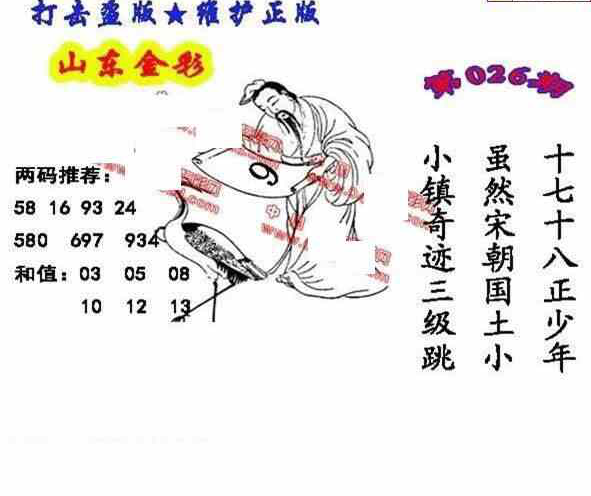 打击盗版★维护正版
山东金彩
第:026-期
十七十八正少年
虽然宋朝国土小
小镇奇迹三级跳
两码推荐:
58 16 93 24
580 697 934
和值:03 05 08
10 12 13
9